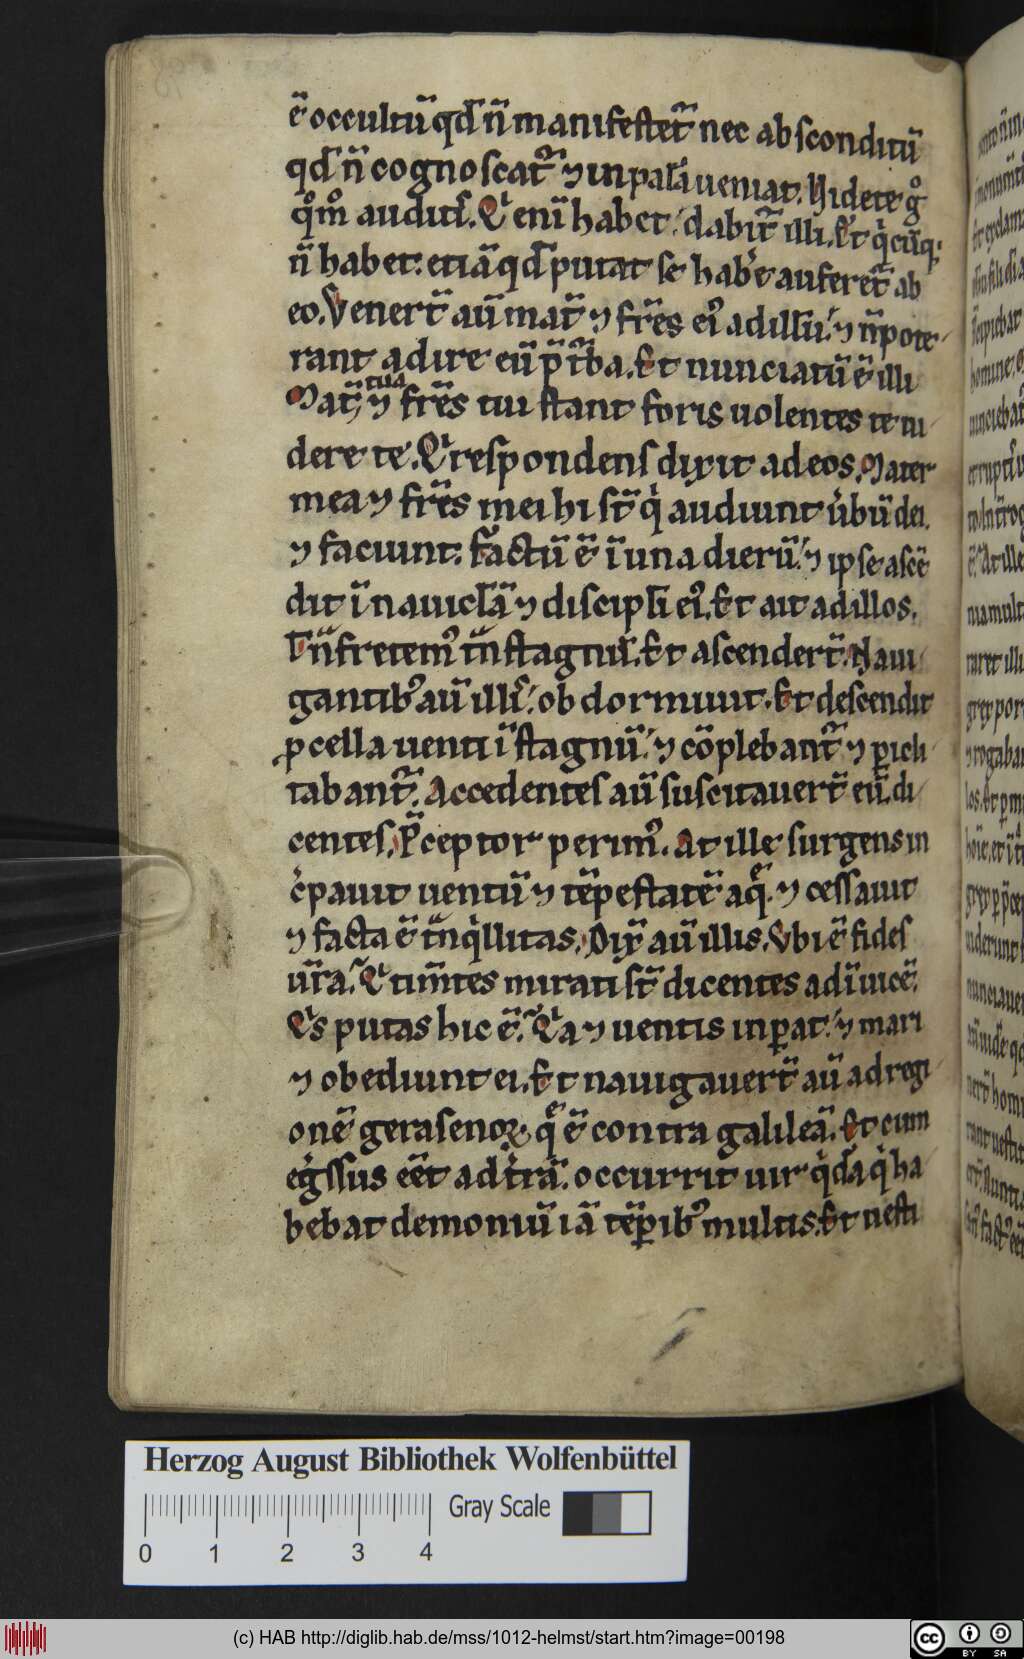 ē occultū qđ n̄ manifestet̄ nec absconditū
qđ n̄ cognoscat᷑ ⁊ in palā ueniat. Uidete gͦ
qͦmͦ auditꝭ. Qͥ enī habet. dabit᷑ illi. Et qͥcūq;
n̄ habet. etiā qđ putat se habꝰe auferet᷑ ab
eo. Venert̄ aū mat̄ ⁊ fr̄es eiꝰ ad illū. ⁊ n̄ pote
rant adire eū p̄ t᷑ba. Et nunciatū ē illi
Mat̄ tua ⁊ fr̄es tui stant foris uolentes te ui
dere te. Qͥ respondens dixit ad eos. Mater
mea ⁊ fr̄es mei hi st̄ qͥ audiunt ūbū dei.
⁊ faciunt. Factū ē ī una dierū. ⁊ ipse ascē
dit ī nauicl̄ā ⁊ discipl̄i eiꝰ. Et ait ad illos.
T᷑nsfretemꝰ t᷑ns stagnū. Et ascendert̄. Naui
gantibꝰ aū illꝭ. obdormiuit. Et descendit
ꝓcella uenti ī stagnū. ⁊ cōplebant᷑ ⁊ ꝑicli
tabant᷑. Accedentes aū suscitauert̄ eū. di
centes. P̄ceptor perimꝰ. At ille surgens in
cͥpauit uentū ⁊ tēpestatē aqͤ. ⁊ cessauit
⁊ facta ē t᷑nqͥllitas. Dix̄ aū illis. Vbi ē fides
ūr̄a. Qͥ tim̄tes mirati st̄ dicentes ad īuicē.
Qͥs putas hic ē. Qͥa ⁊ uentis inꝑat. ⁊ mari
⁊ obediunt ei. Et nauigauert̄ aū ad regi
onē gerasenoꝝ. qͤ ē contra galileā. Et cum
egͥssus eēt ad t᷑rā. occurrit uir qͥdā qͥ ha
bebat demoniū iā tēꝑibꝰ multis. Et uesti
Herzog August Bibliothek Wolfenbüttel
Gray Scale
0 1 2 3 4
(c) HAB http://diglib.hab.de/mss/1012-helmst/start.htm?image=00198
cc BY SA